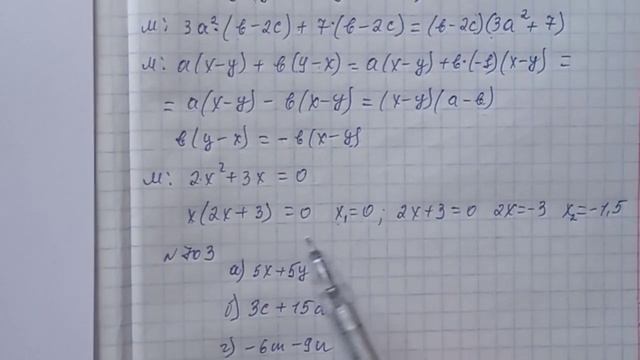 м: 3a²·(в-2c) + 7·(в-2c) = (в-2c)(3a²+7)
м: a(x-y) + в(y-x) = a(x-y) + в·(-1)(x-y) =
= a(x-y) - в(x-y) = (x-y)(a-в)
в(y-x) = -в(x-y)
м: 2·x² + 3x = 0
x(2x+3) = 0 x₁=0; 2x+3=0 2x=-3 x₂=-1,5
№703
а) 5x+5y
б) 3c+15a
г) -6m-9n